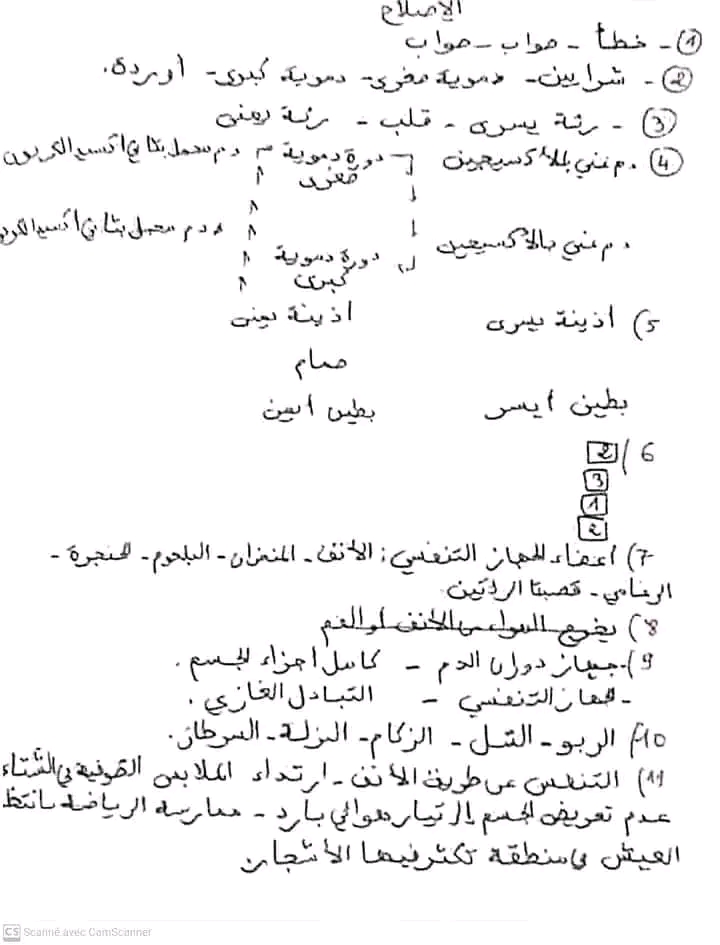 الإصلاح
① - خطأ - صواب - صواب
② - شرايين - دموية صغرى - دموية كبرى - أوردة.
③ - رئة يسرى - قلب - رئة يمنى
④ دم غني بالأكسيجين دورة دموية صغرى دم محمل بثاني أكسيد الكربون
دم غني بالأكسيجين دورة دموية كبرى دم محمل بثاني أكسيد الكربو
5) أذينة يسرى أذينة يمنى
صمام
بطين أيسر بطين أيمن
6) 2
3
1
2
7) أعضاء الجهاز التنفسي: الأنف - المنخران - البلعوم - الحنجرة -
الرغامي - قصبتا الرئتين
8) يخرج الهواء من الأنف أو الفم
9) - جهاز دوران الدم - كامل أجزاء الجسم.
- الجهاز التنفسي - التبادل الغازي.
10) الربو - السل - الزكام - النزلة - السرطان.
11) التنفس عن طريق الأنف - ارتداء الملابس الصوفية في الشتاء
عدم تعريض الجسم إلى تيار هوائي بارد - ممارسة الرياضة بانتظ
العيش في منطقة تكثر فيها الأشجار
CS Scanné avec CamScanner